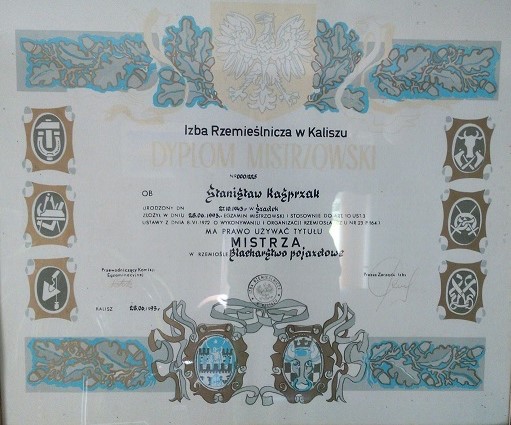 Izba Rzemieślnicza w Kaliszu
DYPLOM MISTRZOWSKI
Nr 0001225
OB Stanisław Kasprzak
URODZONY DN. 21.10.1943 r. W Szadek
ZŁOŻYŁ W DNIU 28.06.1993 r. EGZAMIN MISTRZOWSKI I STOSOWNIE DO ART. 10 UST 3
USTAWY Z DNIA 8.VI.1972 O WYKONYWANIU I ORGANIZACJI RZEMIOSŁA
MA PRAWO UŻYWAĆ TYTUŁU
MISTRZA
W RZEMIOŚLE Blacharstwo pojazdowe
Przewodniczący Komisji
Egzaminacyjnej
Prezes Zarządu Izby
KALISZ 28.06.1993 r.